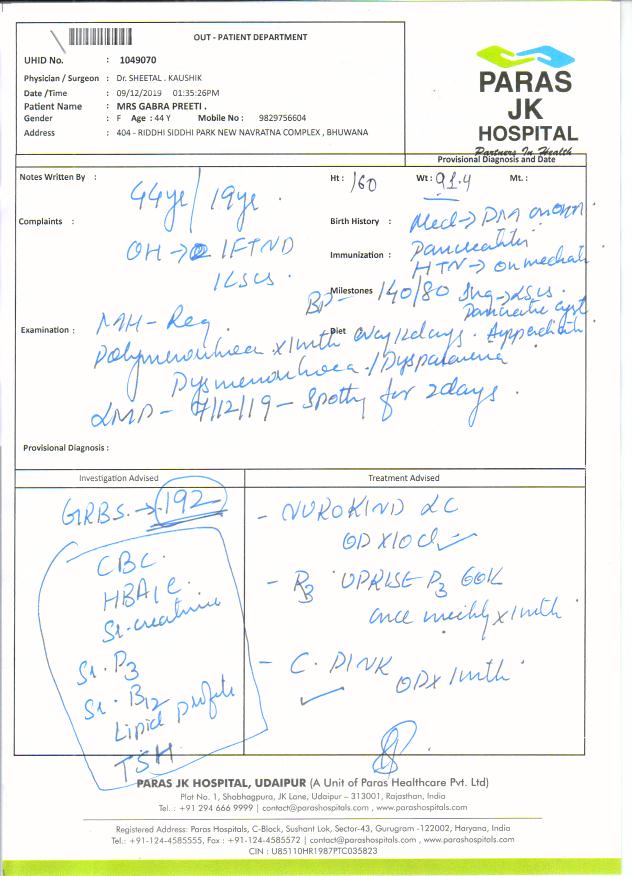 OUT - PATIENT DEPARTMENT
UHID No. : 1049070
Physician / Surgeon : Dr. SHEETAL . KAUSHIK
Date /Time : 09/12/2019 01:35:26PM
Patient Name : MRS GABRA PREETI .
Gender : F Age : 44 Y Mobile No : 9829756604
Address : 404 - RIDDHI SIDDHI PARK NEW NAVRATNA COMPLEX , BHUWANA
PARAS
JK
HOSPITAL
Partners In Health
Provisional Diagnosis and Date
Notes Written By : 44yr / 19yr .
Ht : 160 Wt : 91.4 Mt. :
Complaints :
OH → 1FTND
1LSCS .
Birth History :
Immunization :
Milestones
Diet
Med →
Pancreatitis
HTN → on
BP - 140/80
→ LSCS .
Pancreatic cyst
Examination : MH - Reg
Polymenorrhoea x 1mth every 12days .
Dysmenorrhoea . / Dyspareunia
LMP - 7/12/19 - Spotty for 2days .
Provisional Diagnosis :
Investigation Advised
GRBS . → 192
CBC .
HBA1C .
Sr. creatinine
Sr. D3
Sr. B12
Lipid profile
TSH
Treatment Advised
- NUROKIND LC
OD x 10d
- UPRISE D3 60K
once weekly x 1mth
- C. PINK
OD x 1mth
PARAS JK HOSPITAL, UDAIPUR (A Unit of Paras Healthcare Pvt. Ltd)
Plot No. 1, Shobhagpura, JK Lane, Udaipur – 313001, Rajasthan, India
Tel. : +91 294 666 9999 | contact@parashospitals.com , www.parashospitals.com
Registered Address: Paras Hospitals, C-Block, Sushant Lok, Sector-43, Gurugram -122002, Haryana, India
Tel.: +91-124-4585555, Fax : +91-124-4585572 | contact@parashospitals.com , www.parashospitals.com
CIN : U85110HR1987PTC035823